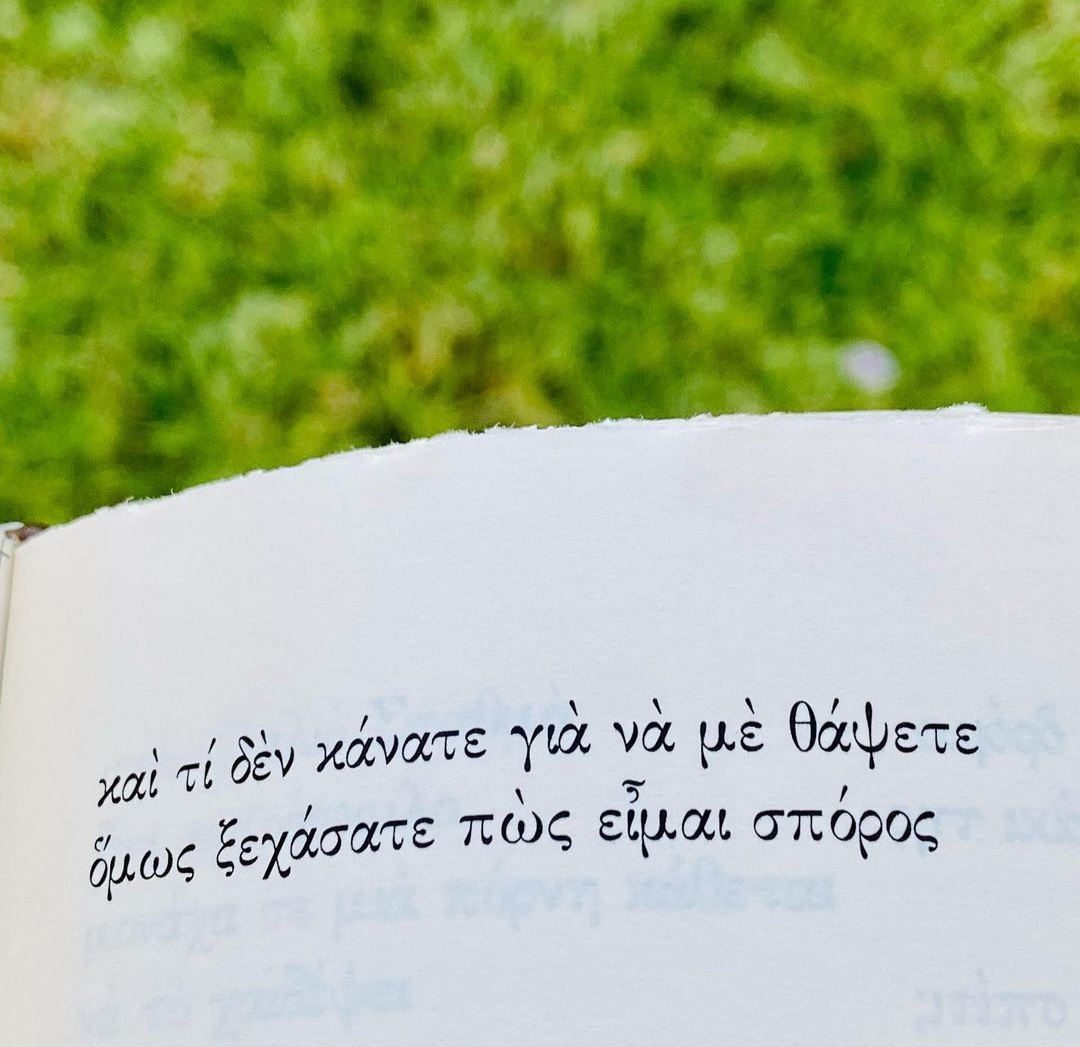 καὶ τί δὲν κάνατε γιὰ νὰ μὲ θάψετε
ὅμως ξεχάσατε πὼς εἶμαι σπόρος